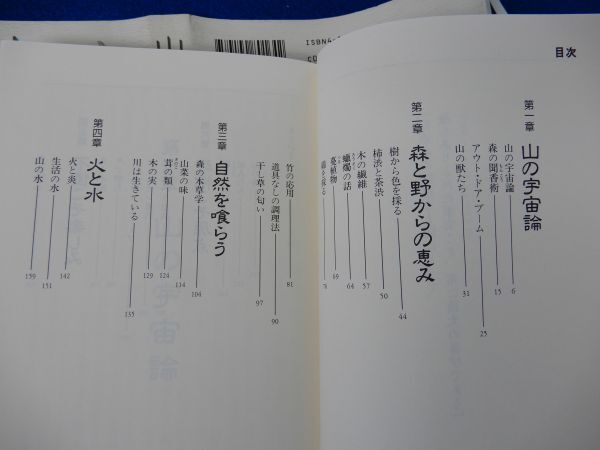 ISBN4-
目次
第一章 山の宇宙論
山の宇宙論 6
森の聞香術 15
アウト・ドア・ブーム 25
山の獣たち 31
第二章 森と野からの恵み
樹から色を採る 44
柿渋と茶渋 50
木の繊維 57
蠟燭の話 64
蔓植物 69
78
竹の応用 81
道具なしの調理法 90
干し草の匂い 97
第三章 自然を喰らう
森の本草学 104
山菜の味 114
茸の類 124
木の実 129
川は生きている 135
第四章 火と水
火と炎 142
生活の水 151
山の水 159